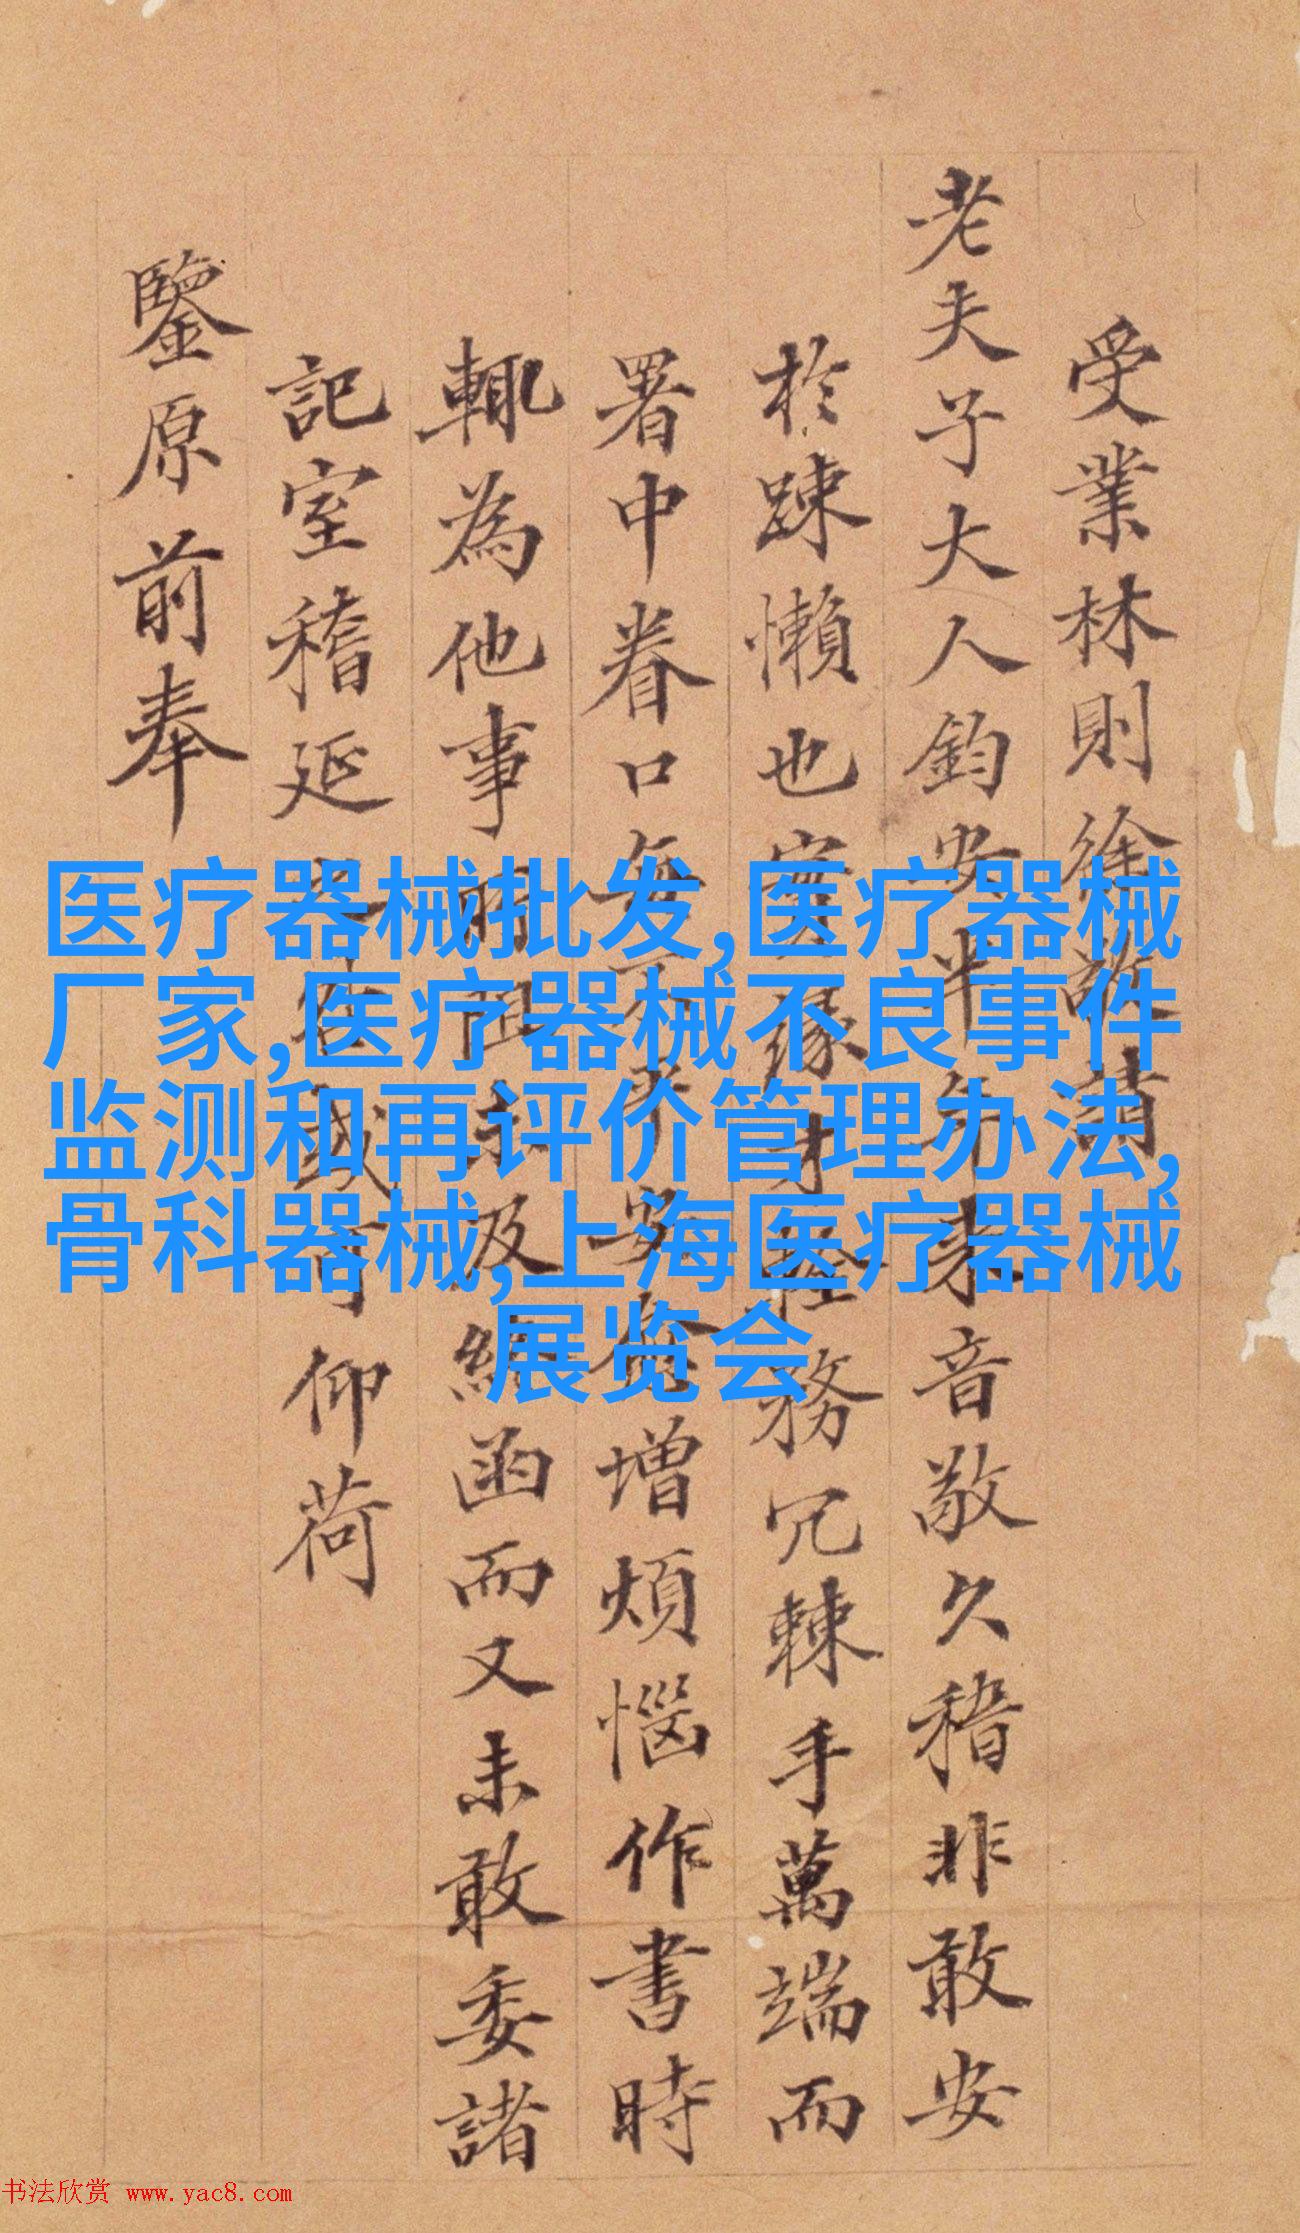 受業林則徐敬請
老夫子大人鈞安半年來音敬久稽非敢安
於踈懶也實緣才拴務冗棘手萬端而
署中眷口每不平安愈增煩惱作書時
輙為他事所阻未及緘函而又未敢委諸
記室稽延
仰荷
鑒原前奉
医疗器械批发,医疗器械
厂家,医疗器械不良事件
监测和再评价管理办法,
骨科器械,上海医疗器械
展览会
书法欣赏 www.yac8.com